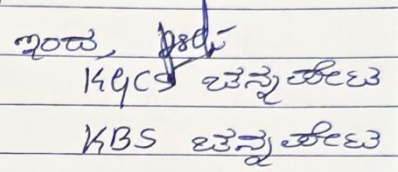 ಇಂದ,
KGCS ಚೆನ್ನಪೇಟ
KBS ಚೆನ್ನಪೇಟ